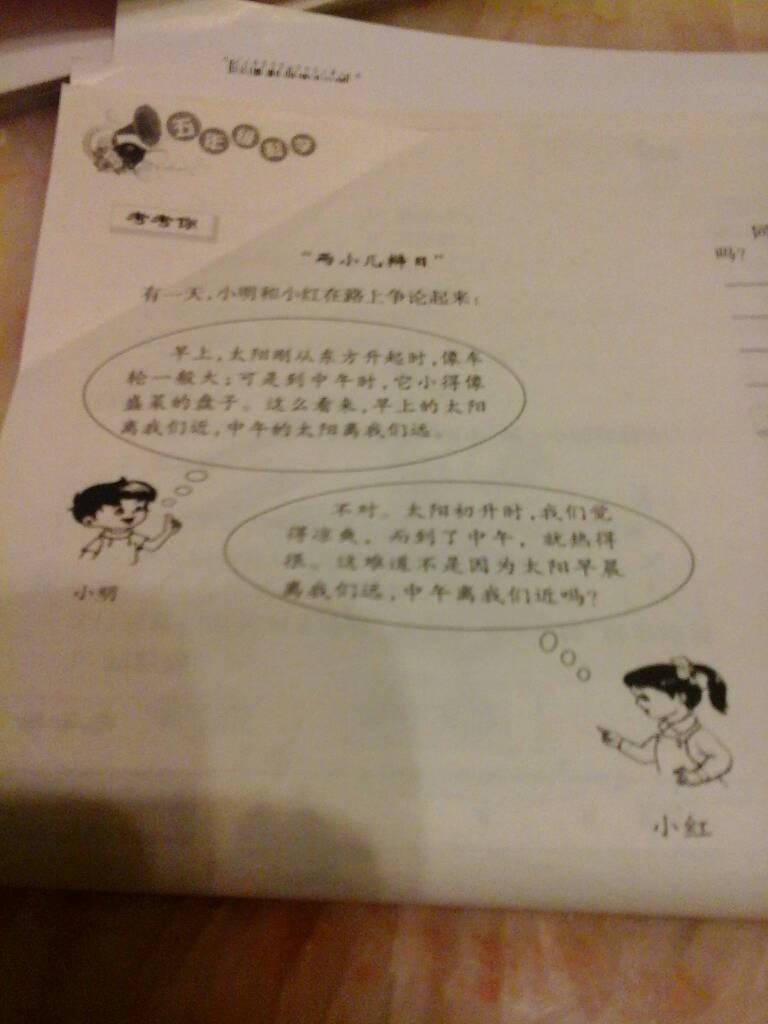 五年级科学
考考你
"两小儿辩日"
有一天,小明和小红在路上争论起来:
早上,太阳刚从东方升起时,像车
轮一般大;可是到中午时,它小得像
盛菜的盘子。这么看来,早上的太阳
离我们近,中午的太阳离我们远。
小明
不对。太阳初升时,我们觉
得凉爽,而到了中午,就热得
很。这难道不是因为太阳早晨
离我们远,中午离我们近吗?
小红
吗?